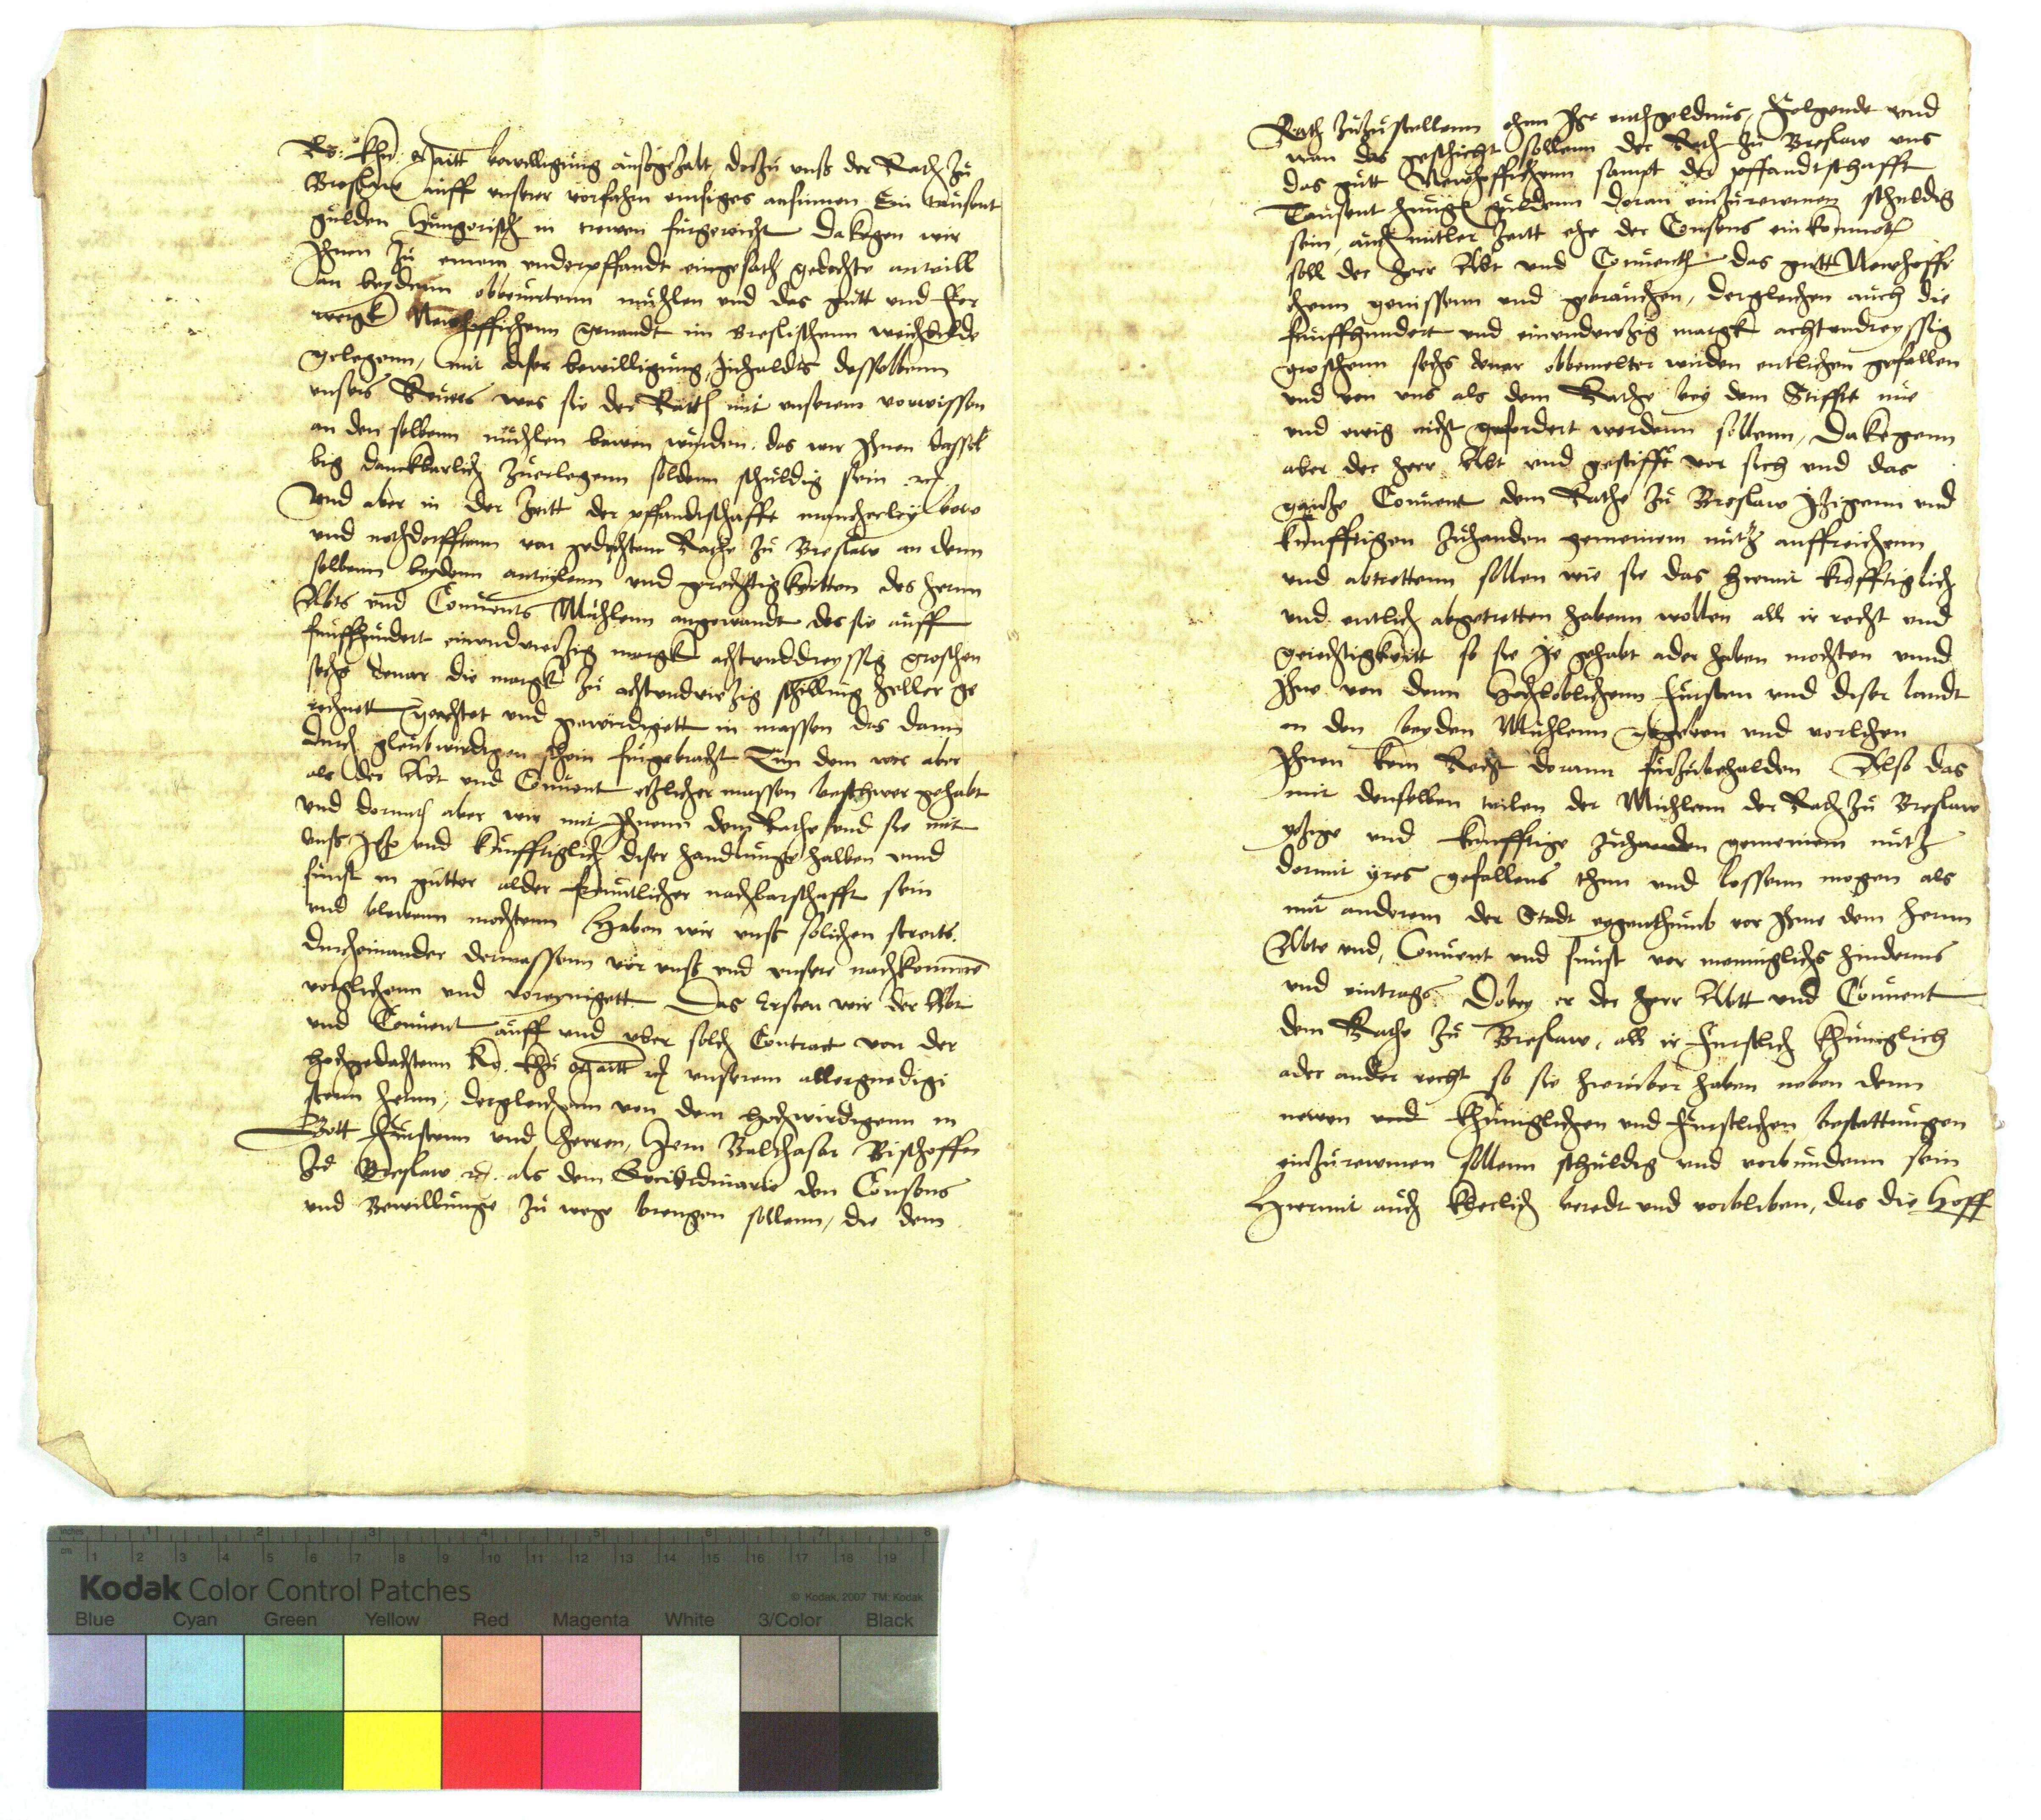 Ro: Khu: Maitt bewilligung ausgezalt, doczu unß der Rath zu
Breslaw auff unserer vorfahrn emsiges ansinnen Ein tausent
gulden Hungerisch in trewen furgereicht Dakegen wir
Ihnen zu einem underpffandt eingesatz gedochte anteill
an beydenn obberurtenn muhlen und das gutt und For
wergk Newhoffichenn genandt im Breslischenn weichbilde
gelegenn, mit diser bewilligung, Inhaldts desselbenn
unsers Reuers was sie der Rath mit unserem vorwissen
an den selbenn muhlen bawen wurden, das wir Ihnen dassel
big danckbarlich zuerlegenn soldenn schuldig sein
Und aber in der Zeitt der pffandtschafft mancherley baw
und nothdorfftenn von gedochtem Rathe zu Breslaw an denn
selbenn beydenn anteylenn und gerechtigkeitten des hern
Abts und Conuents Muhlenn angewandt des sie auff
funffhundert einundvierzig margk achtunddreyssig groschen
sechs denar die margk zu achtundvierzig schilling heller ge
rechnett geachtet und gewirdigett in massen das dann
durch gleubwirdigen schein furgebracht dem wir aber
als der Abt und Conuent etzlicher massen beschwer gehabt
und dormith aber wir mit Ihnenn dem Rathe und sie mit
unß itzt und kunfftiglich diser handlunge halben unnd
sunst in gutter alder fruntlicher nachbarschafft sein
und bleibenn mochtenn Haben wir unß solichen streits
durcheinander dermassenn vor unß und unsere nachkommen
vorglichenn und voreynigett. Das Ersten wir der Abt
und Conuent auff und uber solch Contract von der
hochgedachtenn Ro. Khu Maitt unserem allergnedigi
stenn hern, dergleichenn von dem hochwirdigenn in
Gott Fursten und herren, Hern Balthasar Bischoffen
zu Breslaw als dem den Consens
und Bewillunge zu wege brengen sollenn, die dem
Rath zuzustellenn ohnn Ihr entgeldnus, Folgende und
wan das geschicht sollenn der Rath zu Breslaw uns
das gutt Newhoffichenn sampt der pffandtschafft
Tausent hunge guldenn doran einzurewmen schuldig
sein, auch mitler zeitt ehe der Consens einkommeth
soll der herr Abt und Conuenth das gutt Newhoffi
chenn genissenn und gebrauchen, dergleichen auch die
funffhundert und einundvierzig margk achtundreyssig
groschenn sechs denar obbemelter wirden entlichen gefallen
und von uns als dem Rathe bey dem Stiffte nie
und ewig nicht gefordert werdenn sollenn, Dakegenn
aber der herr Abt und gestifft vor sich und das
gantze Conuent dem Rathe zu Breslaw itzigenn und
kunfftigen zuhanden gemeinem nutz auffreichenn
und abtrettenn sollen wie sie das hirmit krefftiglich
und entlich abgetretten habenn wollen all ir recht und
gerechtigkeitt so sie ye gehabt ader haben mochten unnd
Ihne von denn hochloblichenn Fursten und diser landt
an den beyden Muhlenn gegeben und vorlihen
Ihnen kein Recht dorann furzubehalden Also das
mit denselben teilen der Muhlenn der Rath zu Breslaw
itzige und kunfftige zuhanden gemeinem nutz
dormit yres gefallens thun und lossenn mogen als
mit anderem der Stadt eygenthumb vor Ihme dem hernn
Abte und Conuent und sunst vor menniglichs hindernus
und eintrags. Dobey er der herr Abtt und Conuent
dem Rathe zu Breslaw, all ir Furstlich Khuniglich
ader ander recht so sie hieruber haben neben denn
newen und khuniglichen und Furstlichen bestettungen
einzurewmen sollenn schuldig und vorbundenn sein
Hiermit auch kherlich beredt und vorbliben, das die Hoff
Kodak Color Control Patches
© Kodak, 2007 TM: Kodak
Blue Cyan Green Yellow Red Magenta White 3/Color Black